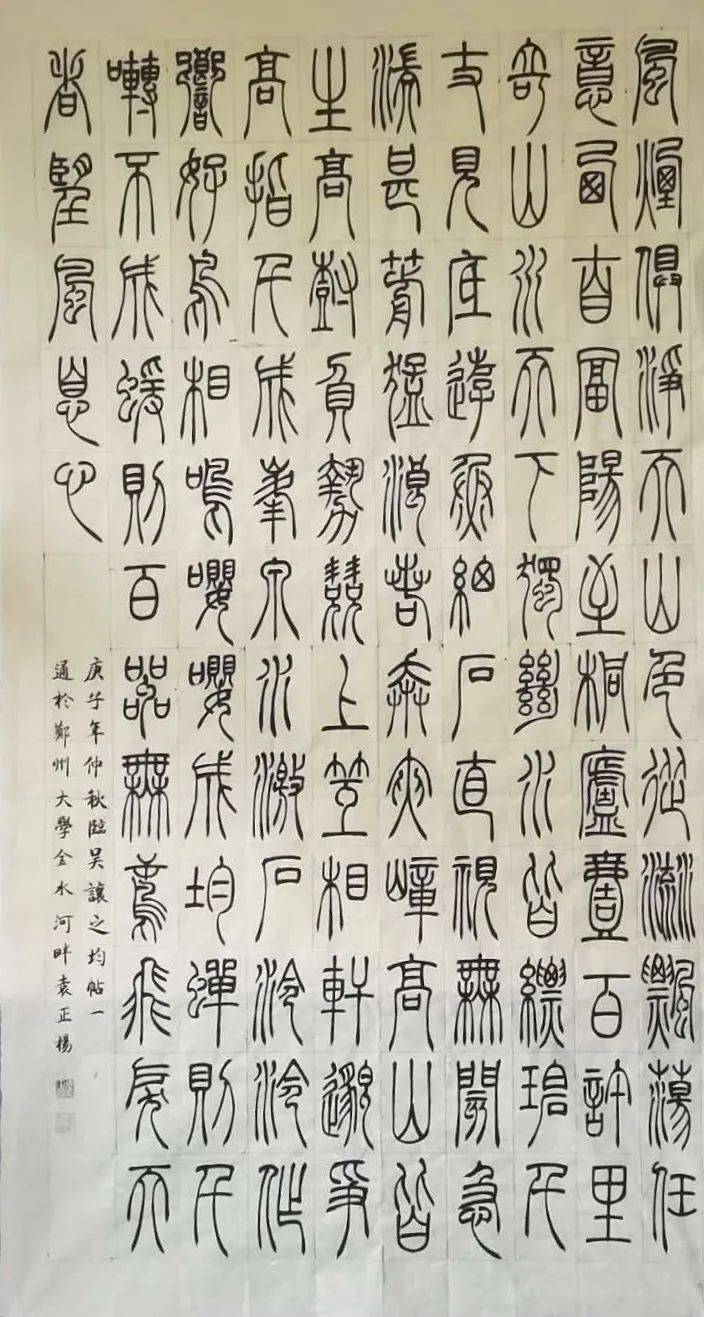 風煙俱淨天山色從流飄蕩任
意西自富陽至桐廬壹百許里
奇山水天下獨絕水皆縹碧千
丈見底游魚細石直視無閡急
湍甚箭猛浪若奔夾嶂高山皆
生高樹負勢競上互相軒邈爭
高指千成峯泉水激石泠泠作
響好鳥相鳴嚶嚶成均蟬則千
囀不成蝯則百嘂無鳶飛戾天
者望風息心
庚子年仲秋臨吳讓之均帖一
通於鄭州大學金水河畔袁正楊